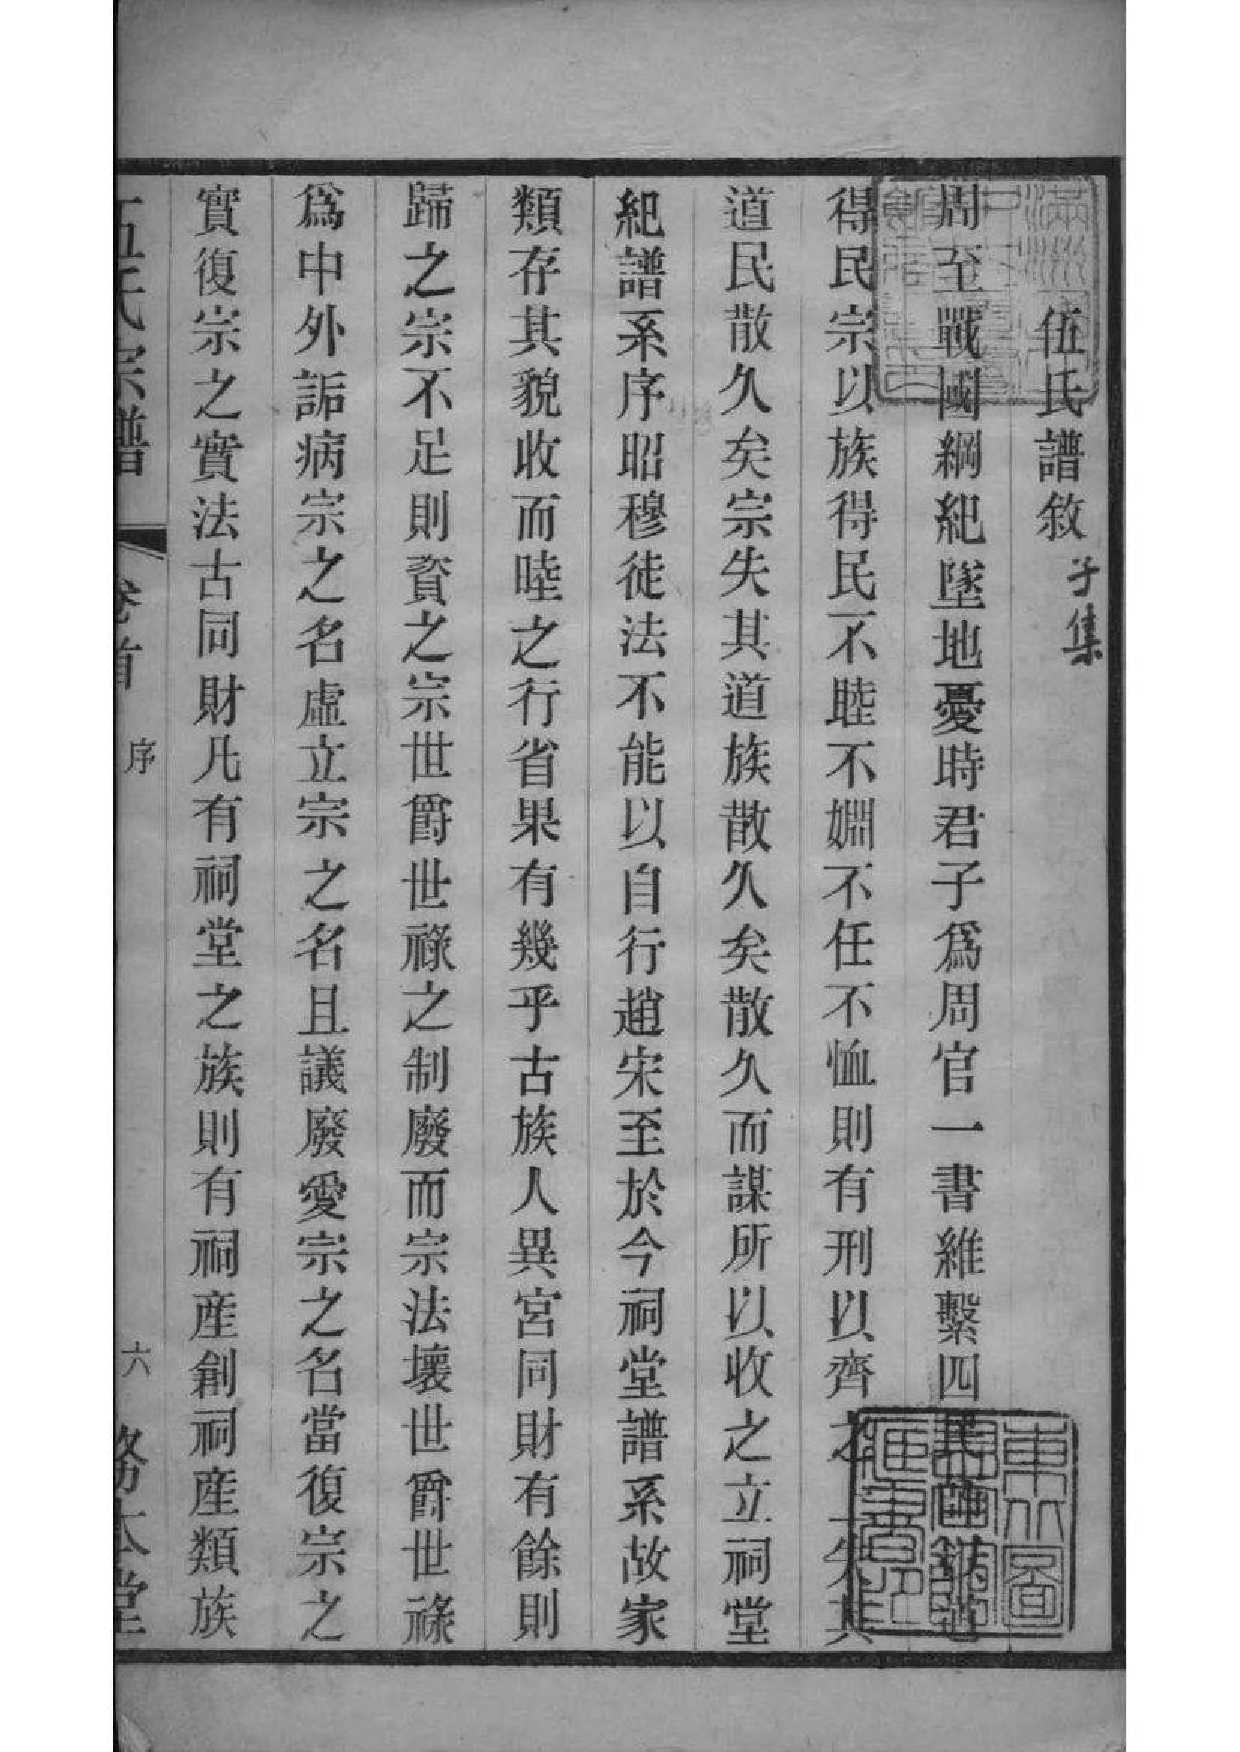 伍氏譜敘
子集
周至戰國綱紀墜地憂時君子爲周官一書維繫四民
得民宗以族得民不睦不婣不任不恤則有刑以齊之上失其
道民散久矣宗失其道族散久矣散久而謀所以收之立祠堂
紀譜系序昭穆徒法不能以自行趙宋至於今祠堂譜系故家
類存其貌收而睦之行省果有幾乎古族人異宮同財有餘則
歸之宗不足則資之宗世爵世祿之制廢而宗法壞世爵世祿
爲中外詬病宗之名虛立宗之名且議廢愛宗之名當復宗之
實復宗之實法古同財凡有祠堂之族則有祠産創祠産類族
伍氏宗譜
卷首
序
六
務本堂